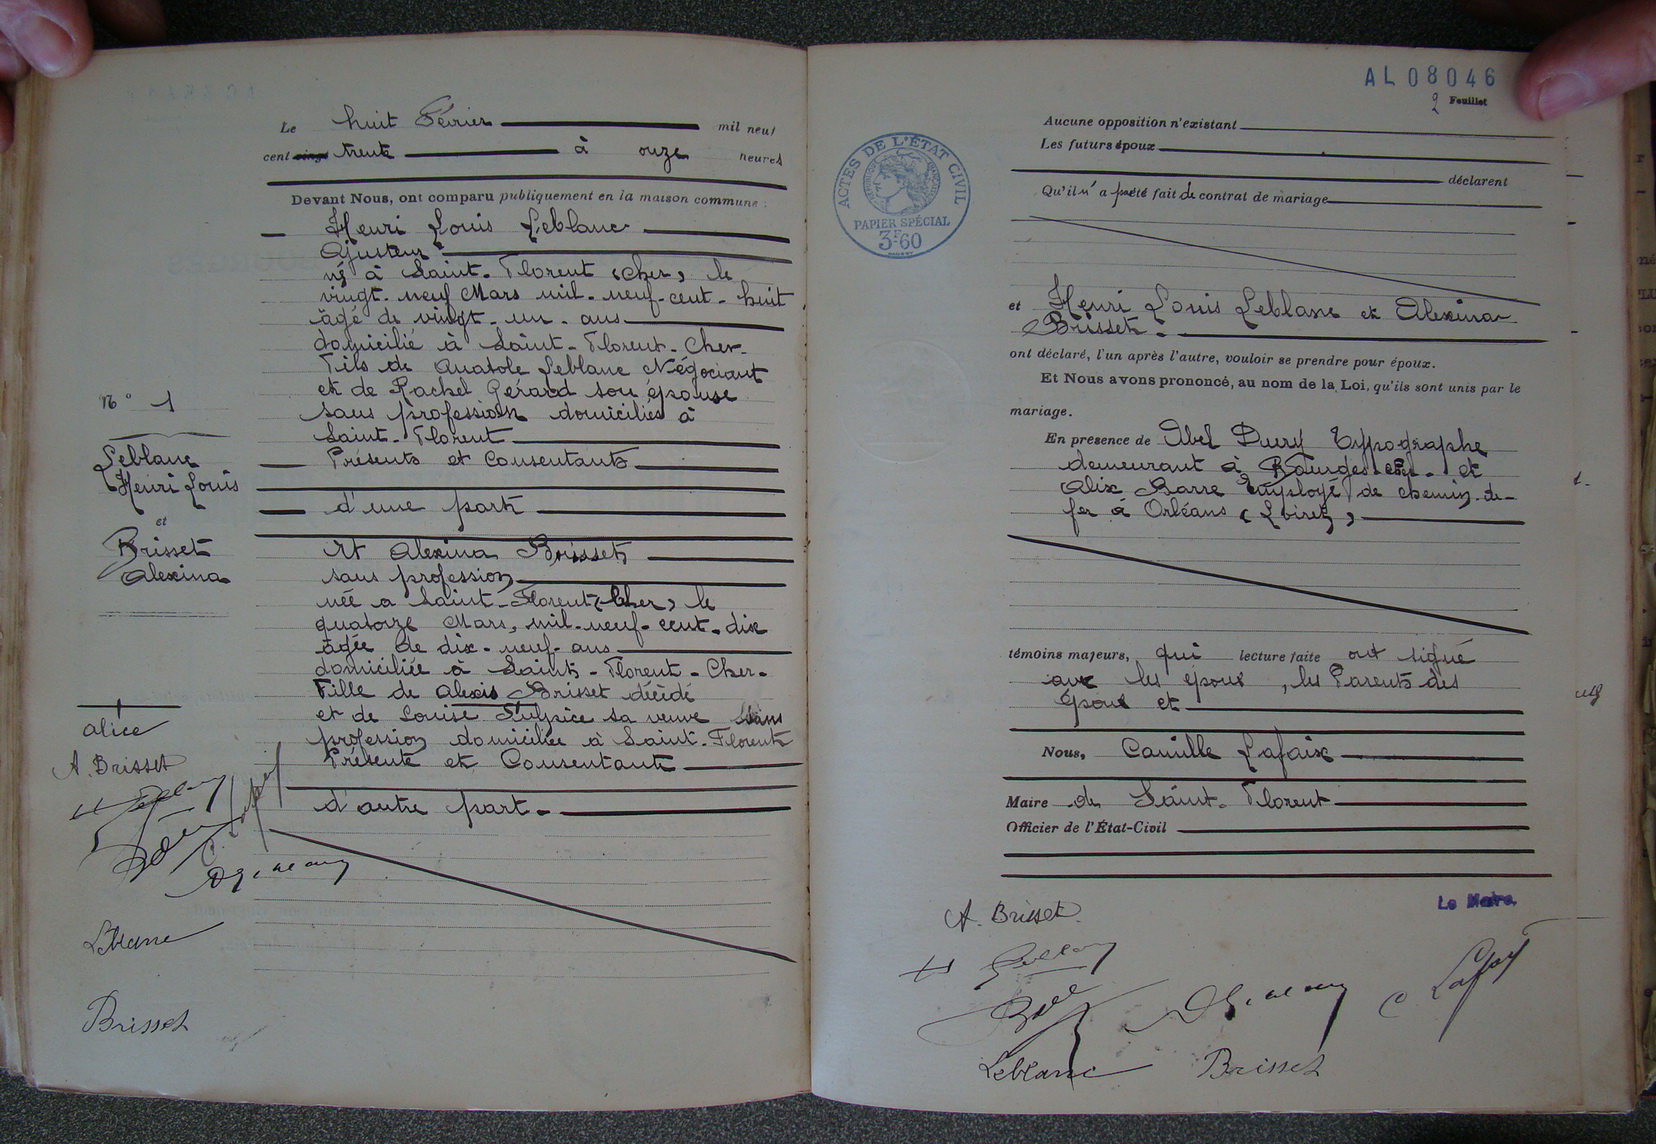 Le huit Février mil neuf
cent vingt trente à onze heures
Devant Nous, ont comparu publiquement en la maison commune :
Henri Louis Leblanc
ajusteur
né à Saint-Florent (Cher) le
vingt-neuf Mars mil-neuf-cent-huit
âgé de vingt-un-ans
domicilié à Saint-Florent-Cher-
Fils de Anatole Leblanc Négociant
et de Rachel Gérard son épouse
sans profession domiciliés à
Saint-Florent
Présents et Consentants
d'une part
Et Alexina Brisset
sans profession
née a Saint-Florent (Cher) le
quatorze Mars, mil-neuf-cent-dix
âgée de dix-neuf-ans
domiciliée à Saint-Florent-Cher-
Fille de Alexis Brisset décédé
et de Louise Sulpice sa veuve sans
profession domiciliée à Saint-Florent
Présente et Consentante
d'autre part-
N° 1
Leblanc
Henri Louis
et
Brisset
Alexina
alice
A. Brisset
Leblanc
Brisset
AL 08046
2 Feuillet
ACTES DE L'ÉTAT CIVIL
PAPIER SPÉCIAL
3F60
Aucune opposition n'existant
Les futurs époux
déclarent
Qu'il n'a pas été fait de contrat de mariage
et Henri Louis Leblanc et Alexina
Brisset
ont déclaré, l'un après l'autre, vouloir se prendre pour époux.
Et Nous avons prononcé, au nom de la Loi, qu'ils sont unis par le
mariage.
En presence de Abel Duery Typographe
demeurant à Bourges Cher- et
Alix Barre Employé de chemin-de-
fer à Orléans (Loiret)
témoins majeurs, qui lecture faite ont signé
avec les époux, les Parents des
époux et
Nous, Camille Lafaix
Maire de Saint-Florent
Officier de l'État-Civil
Le Maire,
A. Brisset
Leblanc Brisset